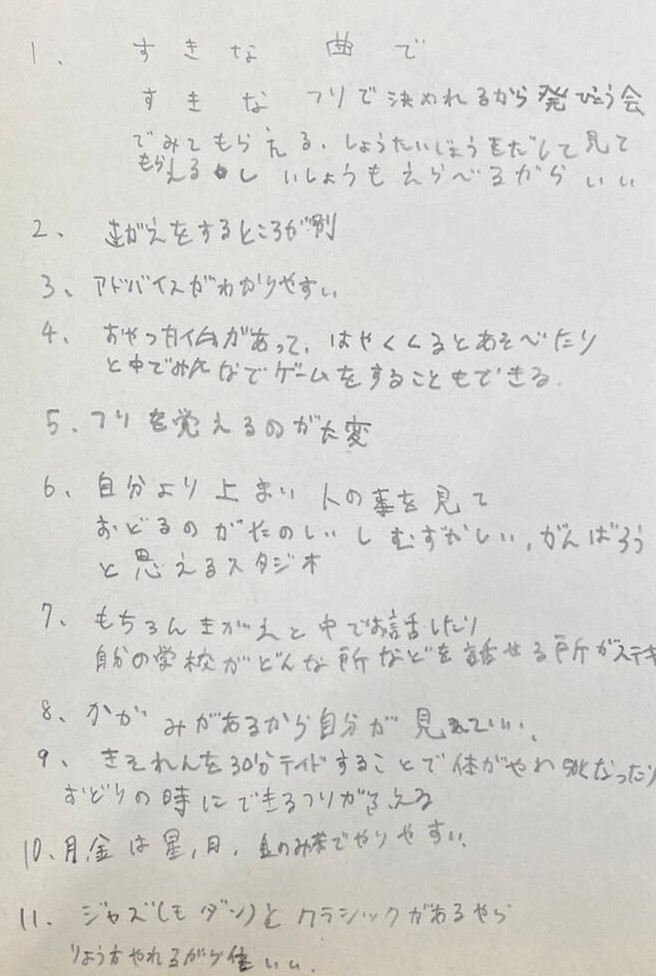 1、 すきな 曲で
すきな フリで決めれるから発ぴょう会
でみてもらえる、しょうたいじょうをだして見て
もらえるし いしょうもえらべるから いい
2、 きがえをするところが別
3、 アドバイスがわかりやすい
4、 おやつタイムがあって、はやくくるとあそべたり
と中でみんなでゲームをすることもできる
5、フリを覚えるのが大変
6、 自分より 上まい 人の事を見て
おどるのがたのしいし むずかしい、がんばろう
と思えるスタジオ
7、 もちろんきがえと中でお話したり
自分の学校がどんな所などを話せる所がステキ
8、 かがみがあるから自分が見れていい、
9、 きそれんを30分テイドすることで体がやわくなったり
おどりの時にできるフリがふえる
10、月、金は星、月、金のみ
11、 ジャズ(モダン)とクラシックがあるやら
りょう方やれるから いい、